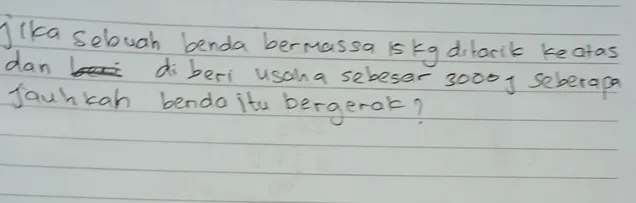 Jika sebuah benda bermassa 15 kg ditarik keatas
dan di beri usaha sebesar 3000 J seberapa
Jauhkah benda itu bergerak?